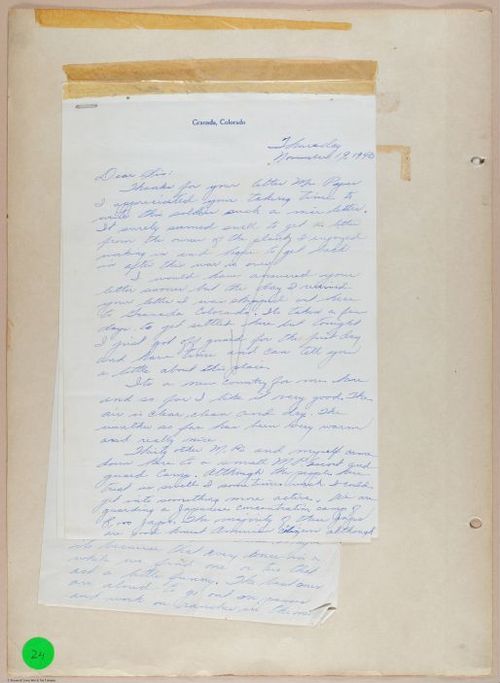 Granada, Colorado
Thursday
November 19, 1942
Dear Sir:
Thanks for your letter Mr. Pager
I appreciated your taking time to
write this soldier such a nice letter.
It surely seemed swell to get a letter
from the owner of the plant I enjoyed
working in and hope to get back
in after this war is over.
I would have answered your
letter sooner but the day I received
your letter I was shipped out here
to Granada Colorado. Its takes a few
days to get settled here but tonight
I just got off guard for the first day
and have time and can tell you
a little about this place.
Its a new country for me here
and so far I like it very good. The
air is clear, clean and dry. The
weather so far has been very warm
and really nice.
Thirty other M.P.s and myself came
down here to a small M.P. escort gud.
guard camp. Although the people here
treat us swell I some times wish I could
get into something more active. We are
guarding a Japanese concentration camp of
8,000 Japs. The majority of these Japs
are good honest American citizens although
its because that every once in a
while we find one or two that
act a little funny. The best ones
are aloud to go out on passes
and work on ranches in the
24